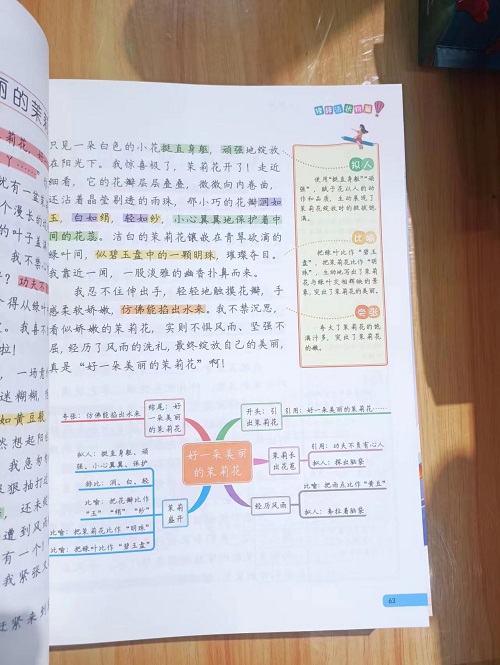 丽的茉
莉花，
丫……”
只见一朵白色的小花挺直身躯，顽强地绽放
在阳光下。我惊喜极了，茉莉花开了！走近
细看，它的花瓣层层叠叠，微微向内卷曲，
还沾着晶莹剔透的雨珠，那小巧的花瓣润如
玉，白如绢，轻如纱，小心翼翼地保护着中
间的花蕊。洁白的茉莉花镶嵌在青翠欲滴的
绿叶间，似碧玉盘中的一颗明珠，璀璨夺目。
我靠近一闻，一股淡雅的幽香扑鼻而来。
我忍不住伸出手，轻轻地触摸花瓣，手
感柔软娇嫩，仿佛能掐出水来。我不禁沉思，
看似娇嫩的茉莉花，实则不惧风雨、坚强不
屈，经历了风雨的洗礼，最终绽放自己的美丽，
真是“好一朵美丽的茉莉花”啊！
拟人
使用“挺直身躯”“顽
强”，赋予花以人的动
作和品质，生动展现了
茉莉花绽放时的挺拔饱
满。
比喻
把绿叶比作“碧玉
盘”，把茉莉花比作“明
珠”，生动地写出了茉莉
花与绿叶交相辉映的景
象，突出了茉莉花的美丽。
夸张
夸大了茉莉花的饱
满汁多，突出了茉莉花
的嫩。
好一朵美丽
的茉莉花
开头：引
出茉莉花
引用：好一朵美丽的茉莉花……
茉莉长
出花苞
引用：功夫不负有心人
拟人：探出脑袋
经历风雨
比喻：把雨点比作“黄豆”
拟人：耷拉着脑袋
茉莉
盛开
拟人：挺直身躯、顽
强、小心翼翼、保护
排比：润、白、轻
比喻：把花瓣比作
“玉”“绢”“纱”
比喻：把茉莉花比作“明珠”
比喻：把绿叶比作“碧玉盘”
结尾：好
一朵美丽
的茉莉花
夸张：仿佛能掐出水来
63